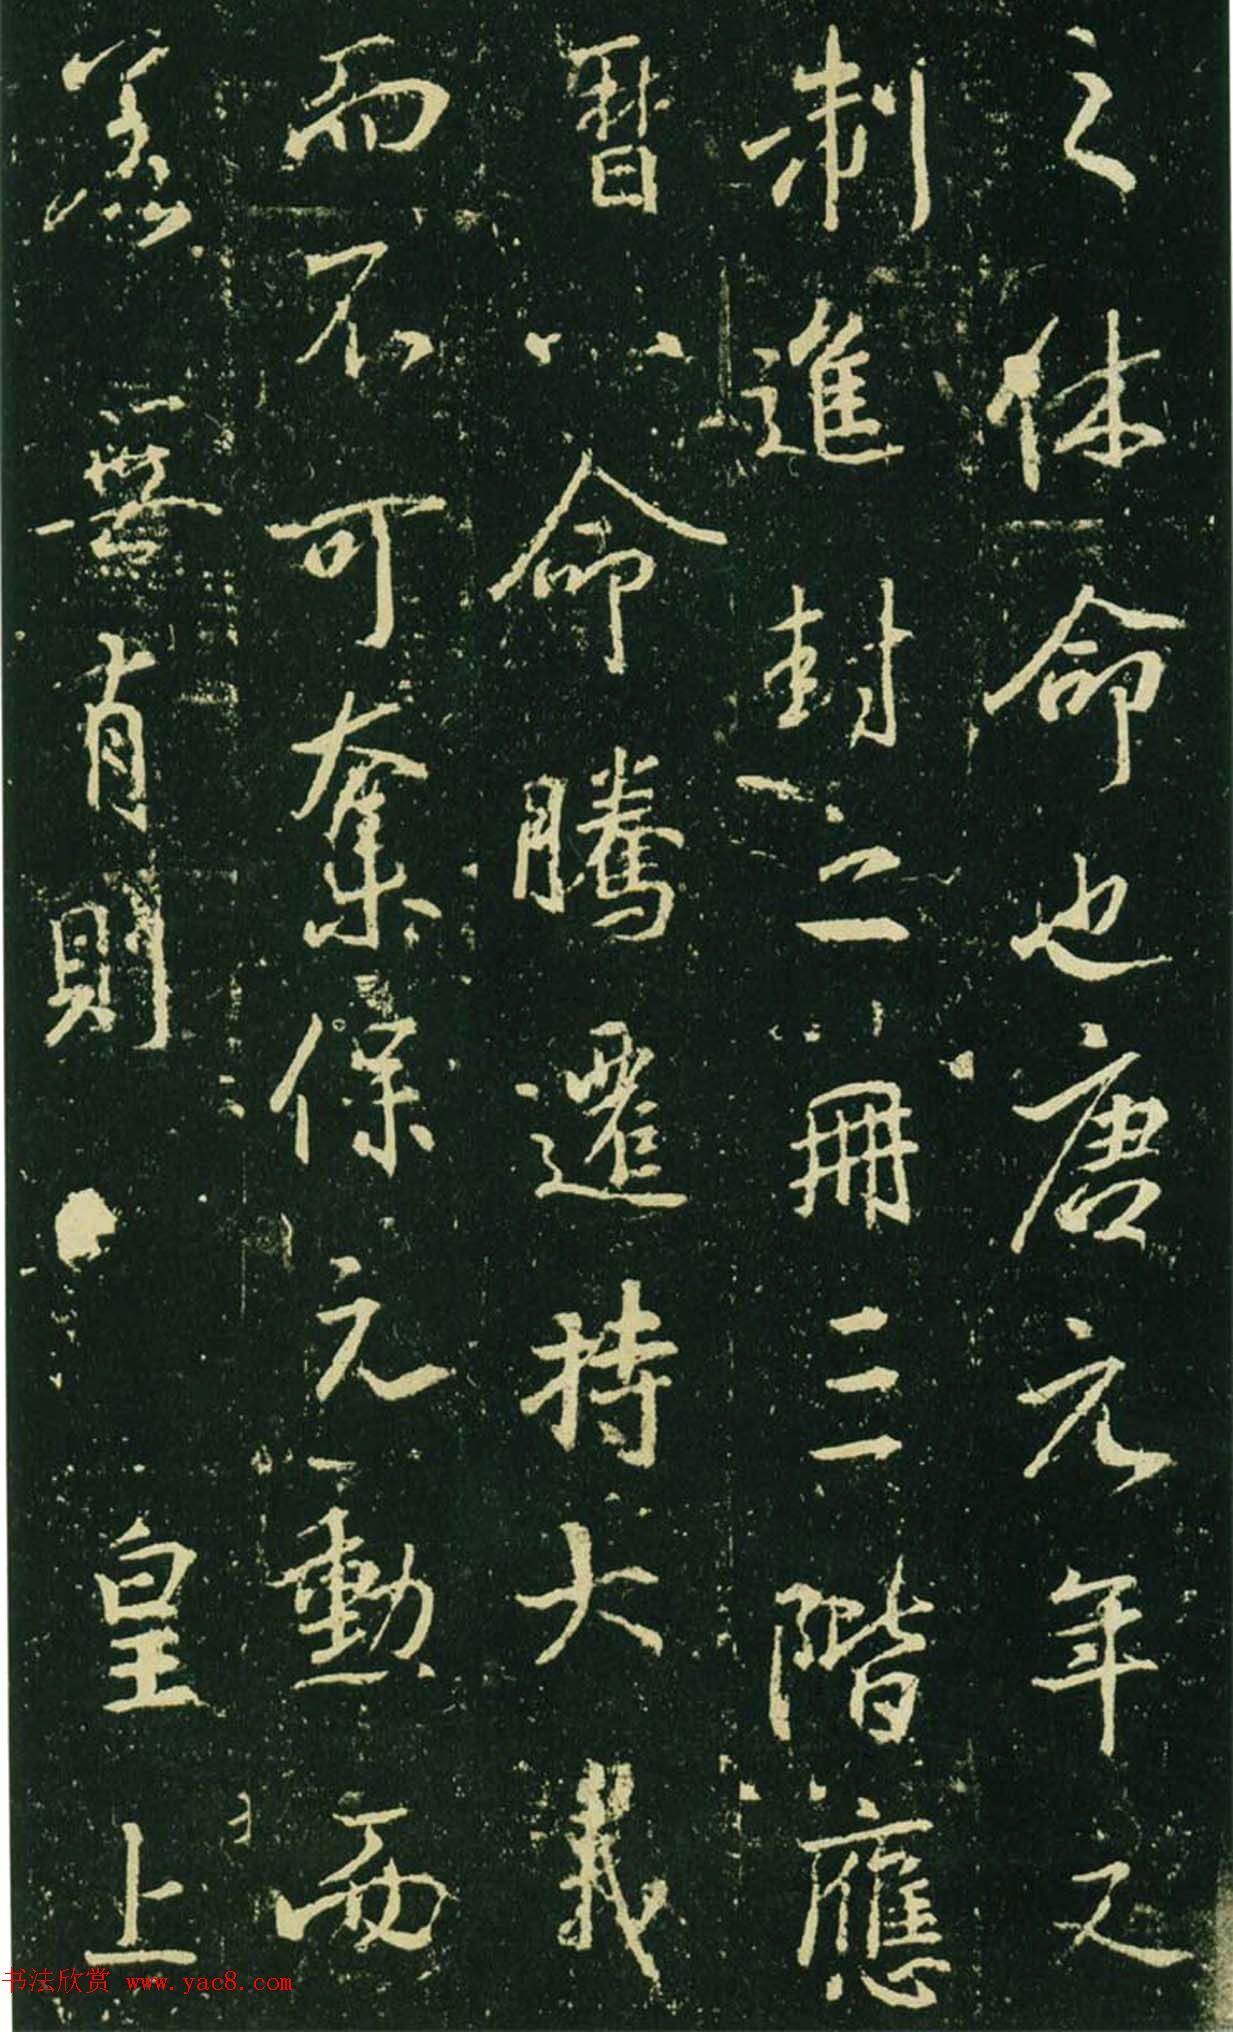 之休命也唐元年之
制進封之冊三階應
曆八命騰遷持大義
而不可奪保元勳而
無則皇上
书法欣赏 www.yac8.com